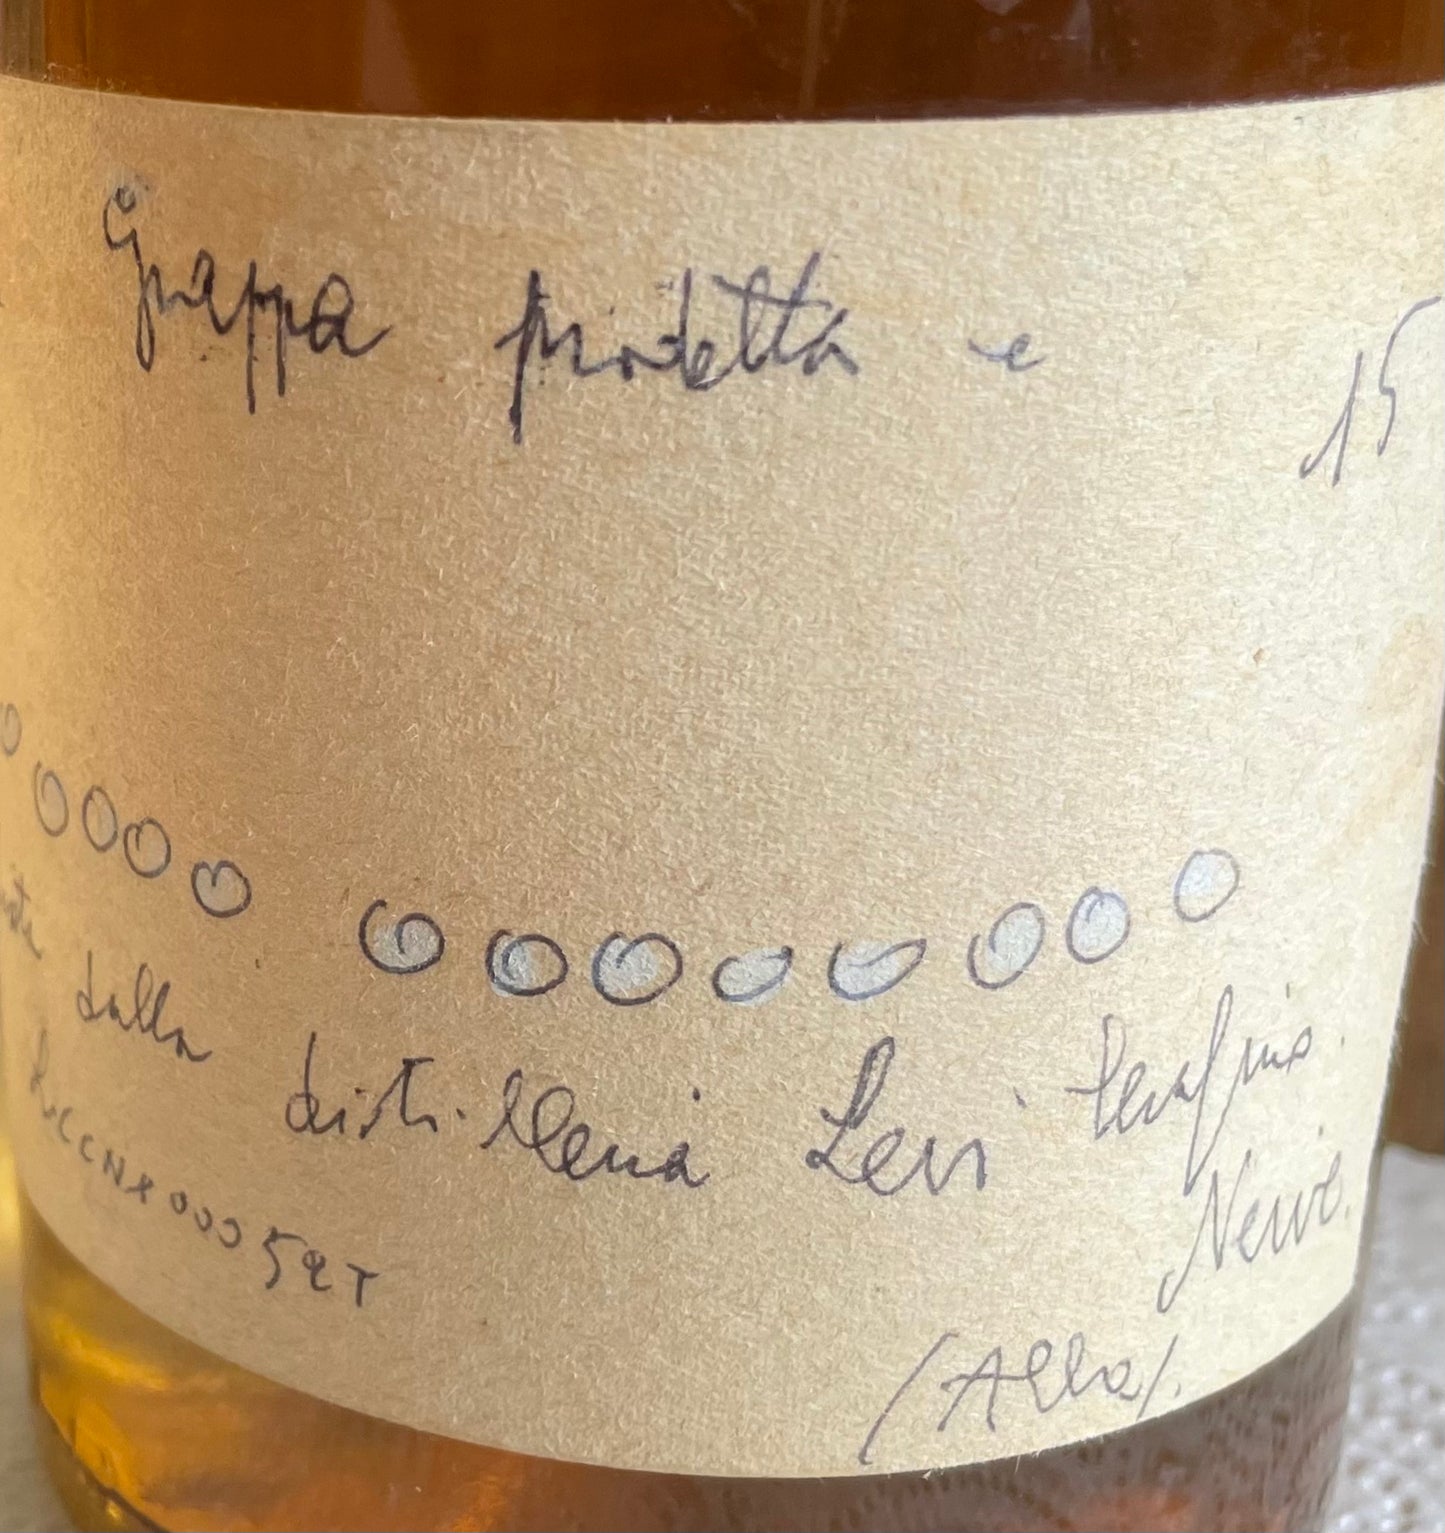 Grappa prodotta e
15
dalla distilleria Levi Serafino
Neive.
CCNX00052T
(Alba).